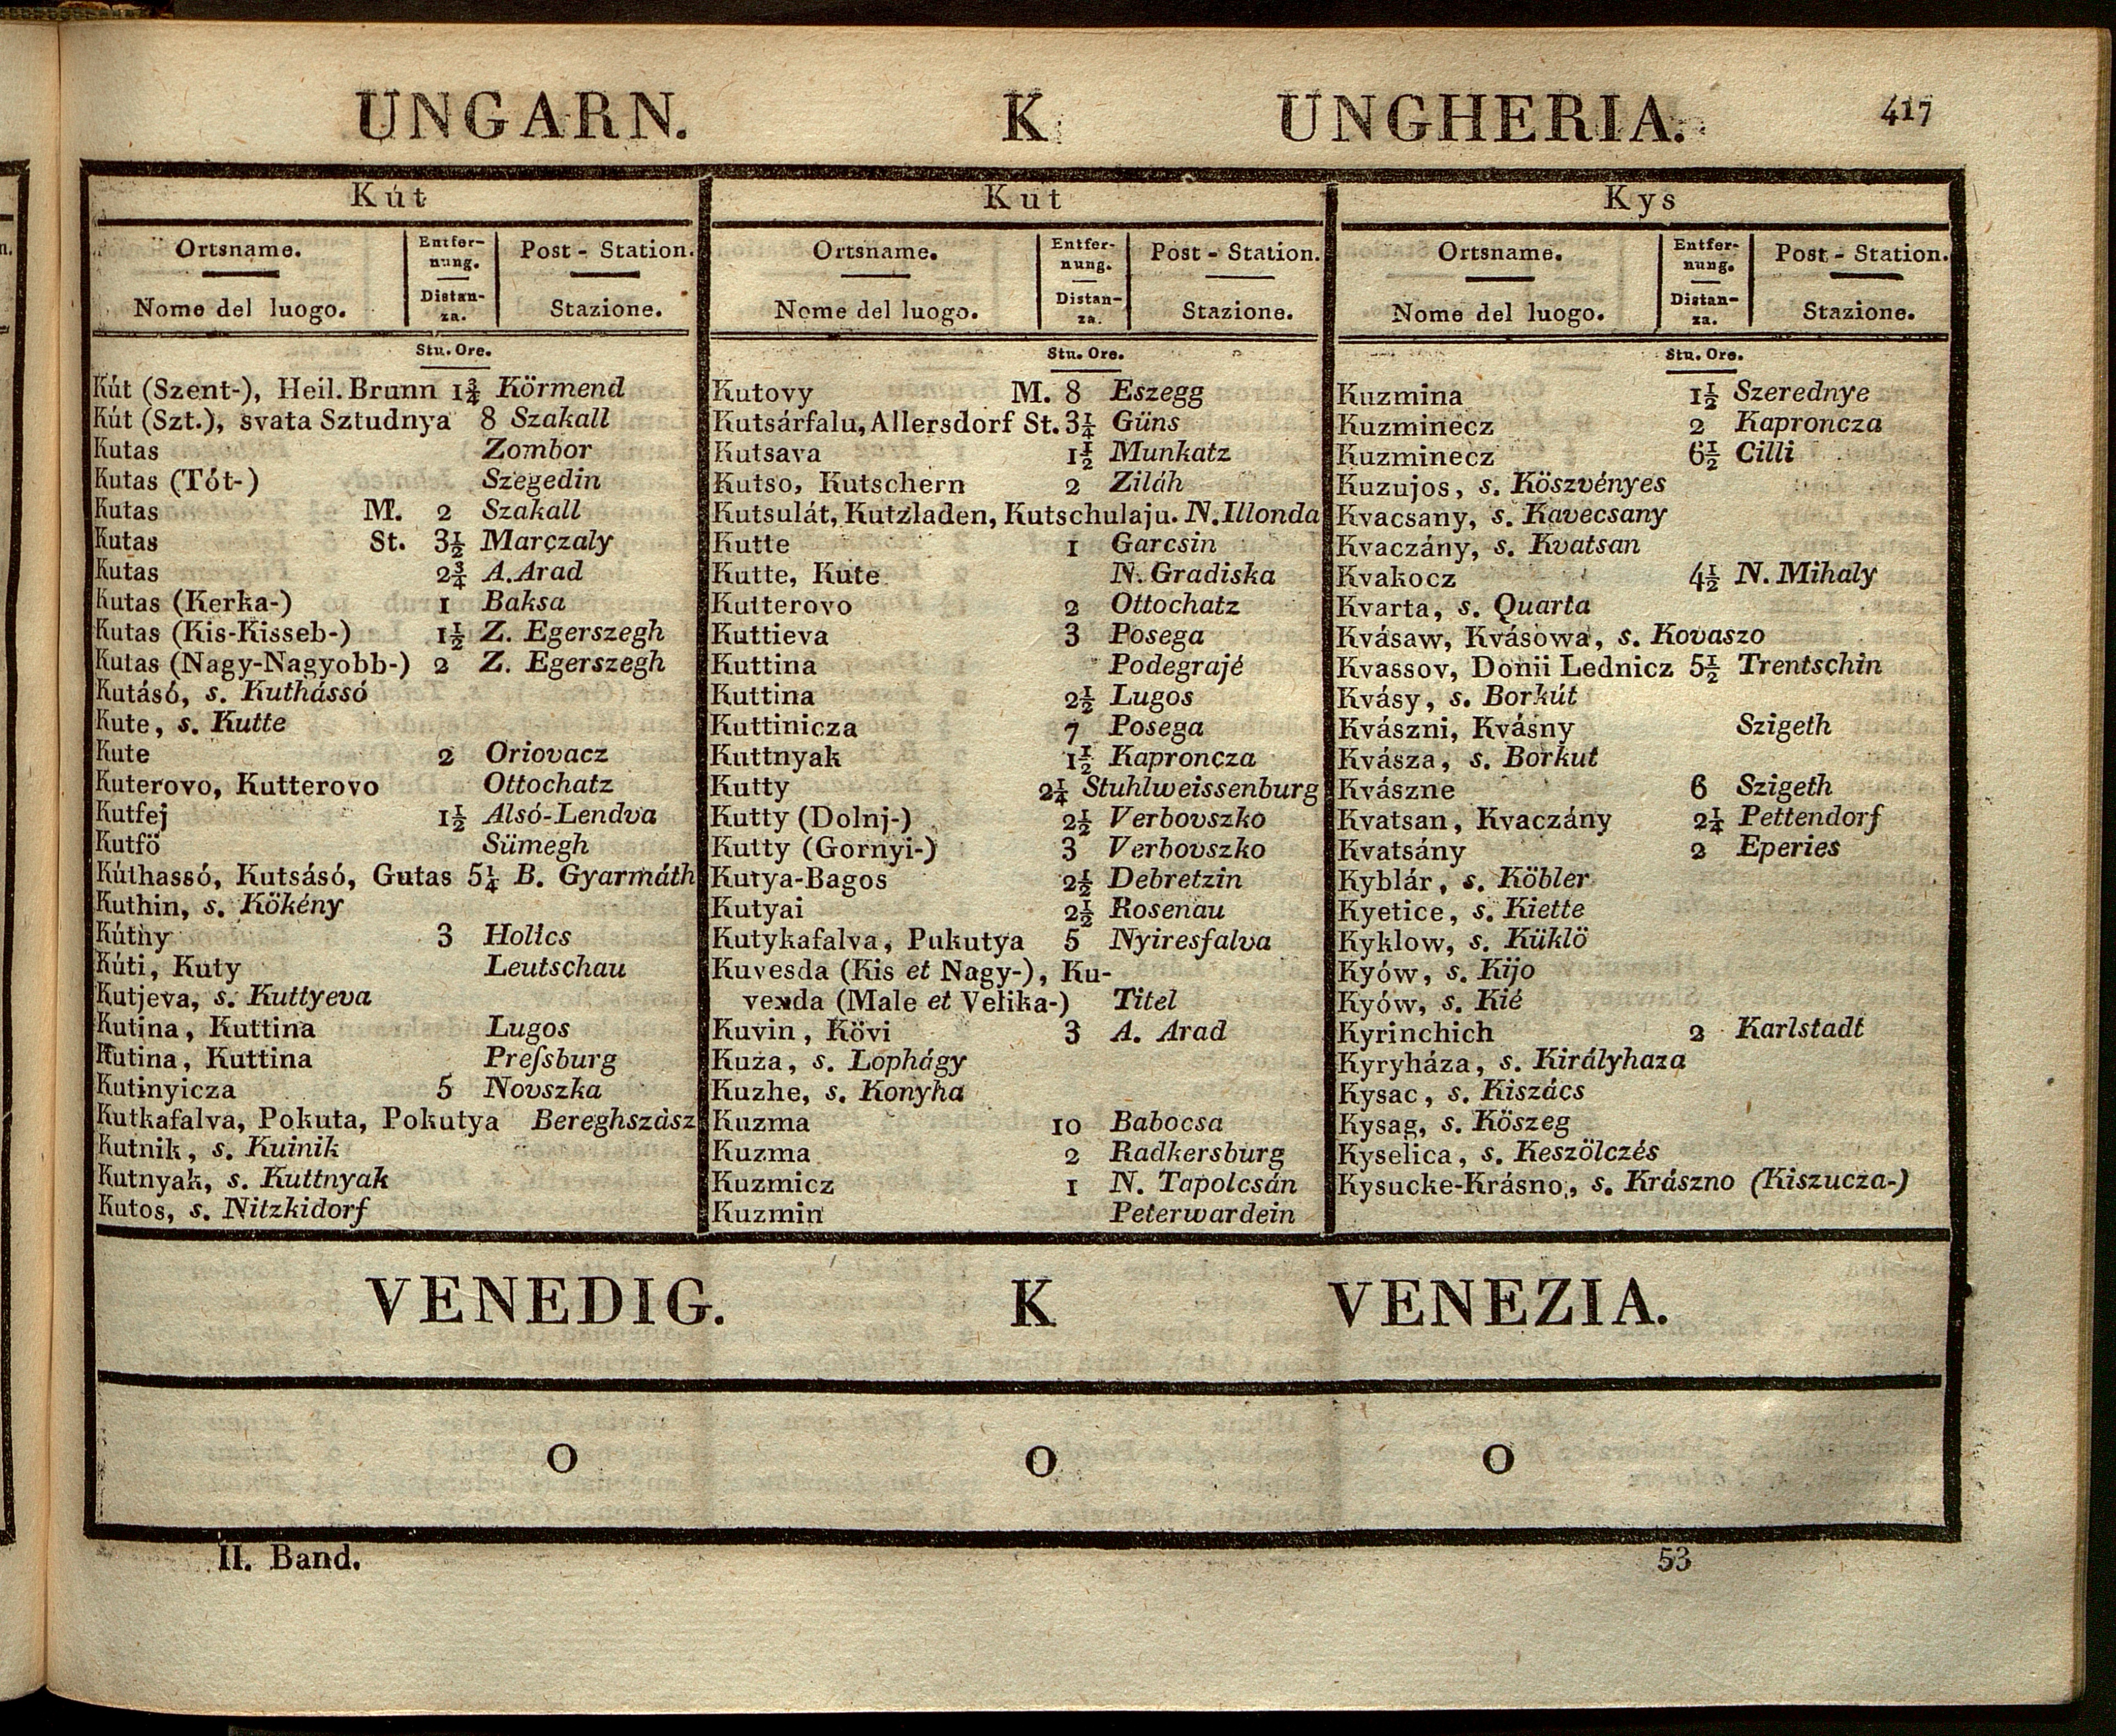 UNGARN. K UNGHERIA. 417
Kút
Ortsname. Entfer- Post - Station.
nung.
Nome del luogo. Distan- Stazione.
za.
Stu. Ore.
Kút (Szent-), Heil. Brunn 1¾ Körmend
Kút (Szt.), svata Sztudnya 8 Szakall
Kutas Zombor
Kutas (Tót-) Szegedin
Kutas M. 2 Szakall
Kutas St. 3½ Marczaly
Kutas 2¾ A. Arad
Kutas (Kerka-) 1 Baksa
Kutas (Kis-Kisseb-) 1½ Z. Egerszegh
Kutas (Nagy-Nagyobb-) 2 Z. Egerszegh
Kutásó, s. Kuthássó
Kute, s. Kutte
Kute 2 Oriovacz
Kuterovo, Kutterovo Ottochatz
Kutfej 1½ Alsó-Lendva
Kutfö Sümegh
Kúthassó, Kutsásó, Gutas 5¼ B. Gyarmáth
Kuthin, s. Kökény
Kúthy 3 Holics
Kúti, Kuty Leutschau
Kutjeva, s. Kuttyeva
Kutina, Kuttina Lugos
Kutina, Kuttina Preſsburg
Kutinyicza 5 Novszka
Kutkafalva, Pokuta, Pokutya Bereghszász
Kutnik, s. Kuinik
Kutnyak, s. Kuttnyak
Kutos, s. Nitzkidorf
Kut
Ortsname. Entfer- Post - Station.
nung.
Nome del luogo. Distan- Stazione.
za.
Stu. Ore.
Kutovy M. 8 Eszegg
Kutsárfalu, Allersdorf St. 3¼ Güns
Kutsava 1½ Munkatz
Kutso, Kutschern 2 Ziláh
Kutsulát, Kutzladen, Kutschulaju. N. Illonda
Kutte 1 Garcsin
Kutte, Kute N. Gradiska
Kutterovo 2 Ottochatz
Kuttieva 3 Posega
Kuttina Podegrajé
Kuttina 2½ Lugos
Kuttinicza 7 Posega
Kuttnyak 1½ Kaproncza
Kutty 2¼ Stuhlweissenburg
Kutty (Dolnj-) 2½ Verbovszko
Kutty (Gornyi-) 3 Verbovszko
Kutya-Bagos 2½ Debretzin
Kutyai 2½ Rosenau
Kutykafalva, Pukutya 5 Nyiresfalva
Kuvesda (Kis et Nagy-), Ku-
vexda (Male et Velika-) Titel
Kuvin, Kövi 3 A. Arad
Kuza, s. Lophágy
Kuzhe, s. Konyha
Kuzma 10 Babocsa
Kuzma 2 Radkersburg
Kuzmicz 1 N. Tapolcsán
Kuzmin Peterwardein
Kys
Ortsname. Entfer- Post - Station.
nung.
Nome del luogo. Distan- Stazione.
za.
Stu. Ore.
Kuzmina 1½ Szerednye
Kuzminecz 2 Kaproncza
Kuzminecz 6½ Cilli
Kuzujos, s. Köszvényes
Kvacsany, s. Kavecsany
Kvaczány, s. Kvatsan
Kvakocz 4½ N. Mihaly
Kvarta, s. Quarta
Kvásaw, Kvásowa, s. Kovaszo
Kvassov, Donii Lednicz 5½ Trentschin
Kvásy, s. Borkút
Kvászni, Kvásny Szigeth
Kvásza, s. Borkut
Kvászne 6 Szigeth
Kvatsan, Kvaczány 2¼ Pettendorf
Kvatsány 2 Eperies
Kyblár, s. Köbler
Kyetice, s. Kiette
Kyklow, s. Küklö
Kyów, s. Kijo
Kyów, s. Kié
Kyrinchich 2 Karlstadt
Kyryháza, s. Királyhaza
Kysac, s. Kiszács
Kysag, s. Köszeg
Kyselica, s. Keszölczés
Kysucke-Krásno, s. Krászno (Kiszucza-)
VENEDIG. K VENEZIA.
O O O
II. Band. 53